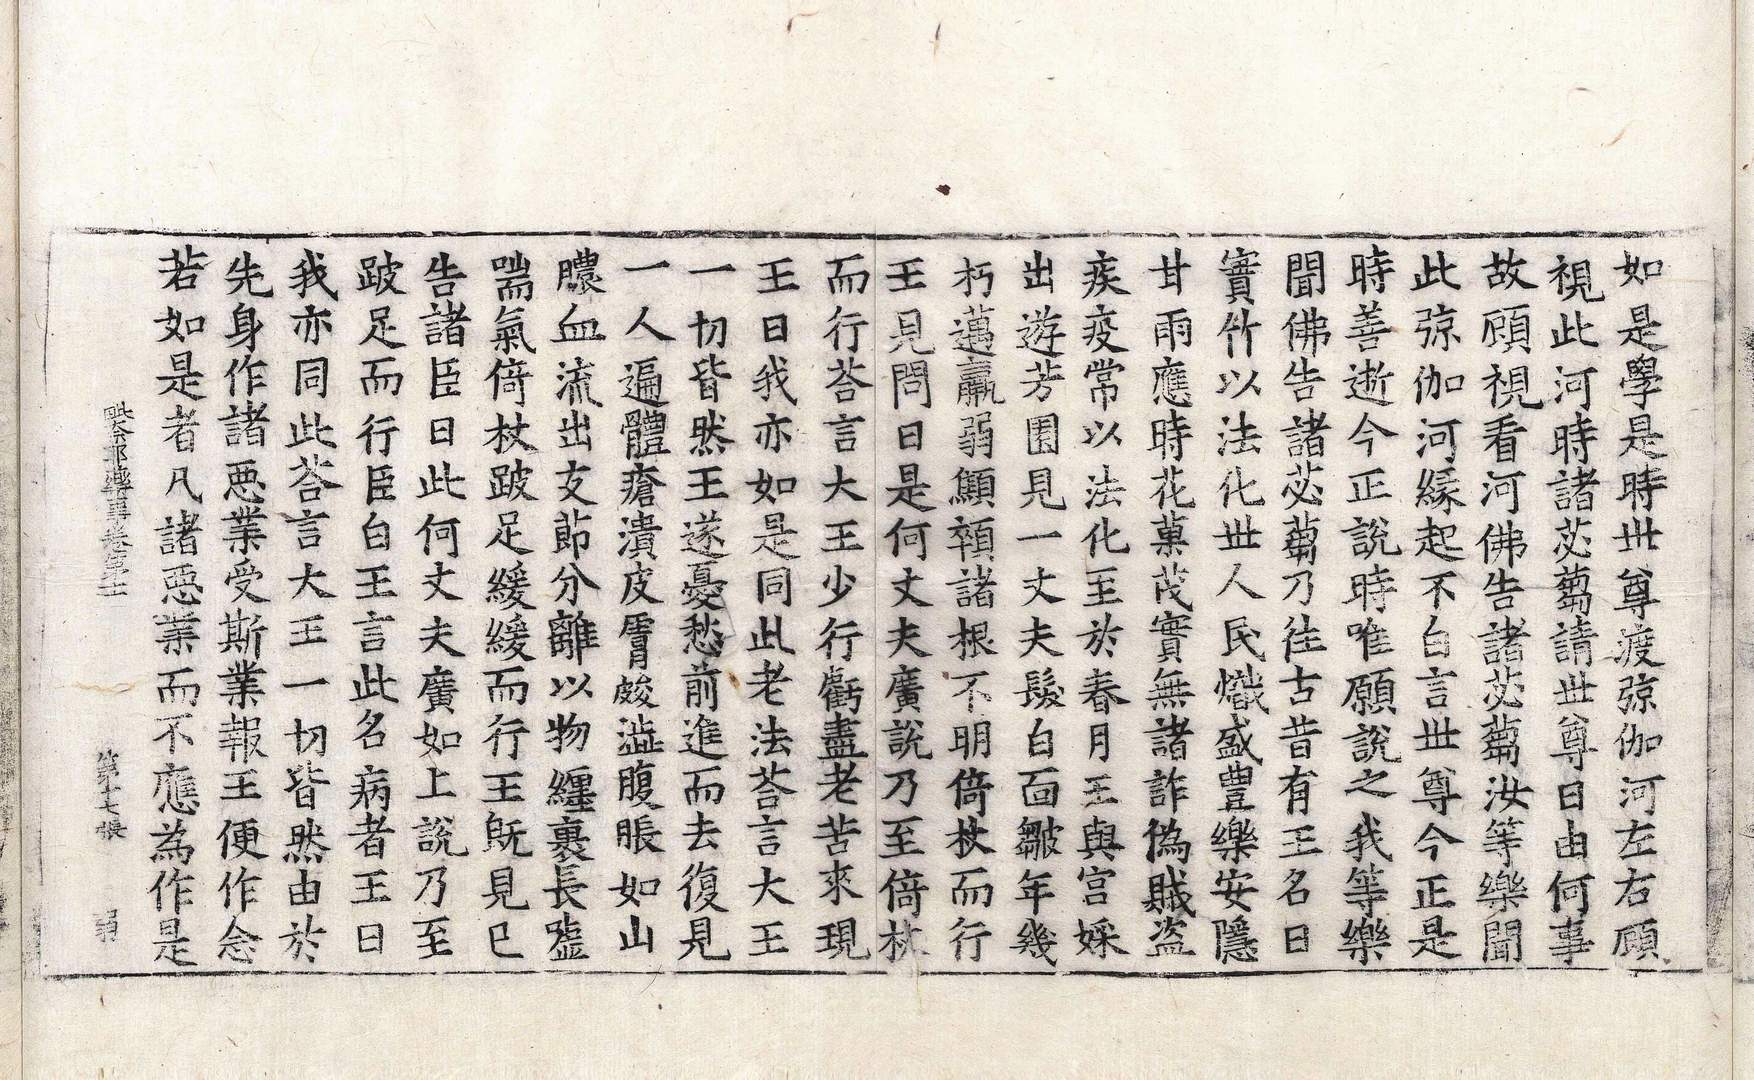 如是學是時世尊渡弶伽河左右顧
視此河時諸苾蒭請世尊曰由何事
故顧視看河佛告諸苾蒭汝等樂聞
此弶伽河緣起不白言世尊今正是
時善逝今正說時唯願說之我等樂
聞佛告諸苾蒭乃往古昔有王名曰
實竹以法化世人民熾盛豐樂安隱
甘雨應時花菓茂實無諸詐偽賊盗
疾疫常以法化至於春月王與宮婇
出遊芳園見一丈夫髮白面皺年幾
朽邁羸弱顦顇諸根不明倚杖而行
王見問曰是何丈夫廣說乃至倚杖
而行荅言大王少行虧盡老苦來現
王曰我亦如是同此老法荅言大王
一切皆然王遂憂愁前進而去復見
一人遍體瘡潰皮膚皴澁腹脹如山
膿血流出支節分離以物纏裹長噓
喘氣倚杖跛足緩緩而行王旣見已
告諸臣曰此何丈夫廣如上說乃至
跛足而行臣白王言此名病者王曰
我亦同此荅言大王一切皆然由於
先身作諸惡業受斯業報王便作念
若如是者凡諸惡業而不應為作是
第十七張